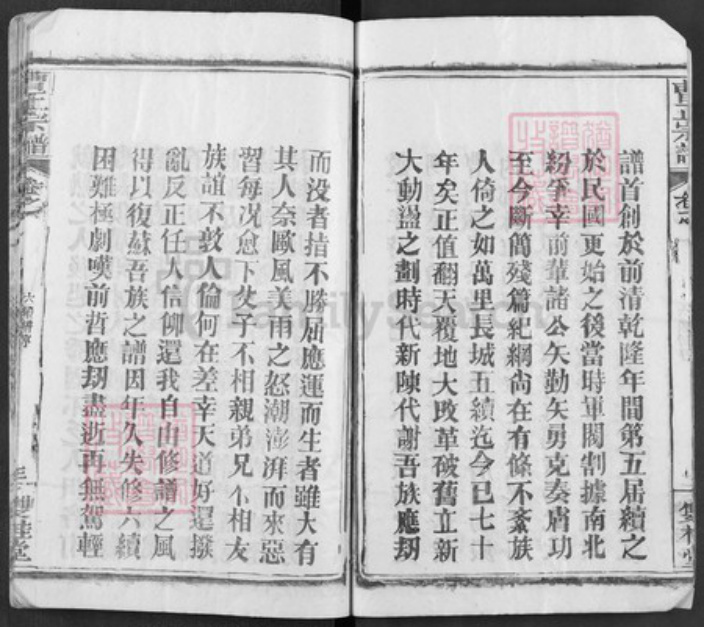 譜首創於前清乾隆年間第五屆續之
於民國更始之後當時軍閥割據南北
紛爭幸前輩諸公矢勤矢勇克奏膚功
至今斷簡殘篇紀綱尚在有條不紊族
人倚之如萬里長城五續迄今已七十
年矣正值翻天覆地大改革破舊立新
大動盪之劃時代新陳代謝吾族應刼
而没者措不勝屈應運而生者雖大有
其人奈歐風美雨之怒潮澎湃而來惡
習每况愈下父子不相親弟兄不相友
族誼不敦人倫何在差幸天道好還撥
亂反正任人信仰還我自由修譜之風
得以復蘇吾族之譜因年久失修六續
困難極劇嘆前哲應刼盡逝再無駕輕
曹氏宗譜
卷之
六續譜序
雙桂堂
FamilySearch